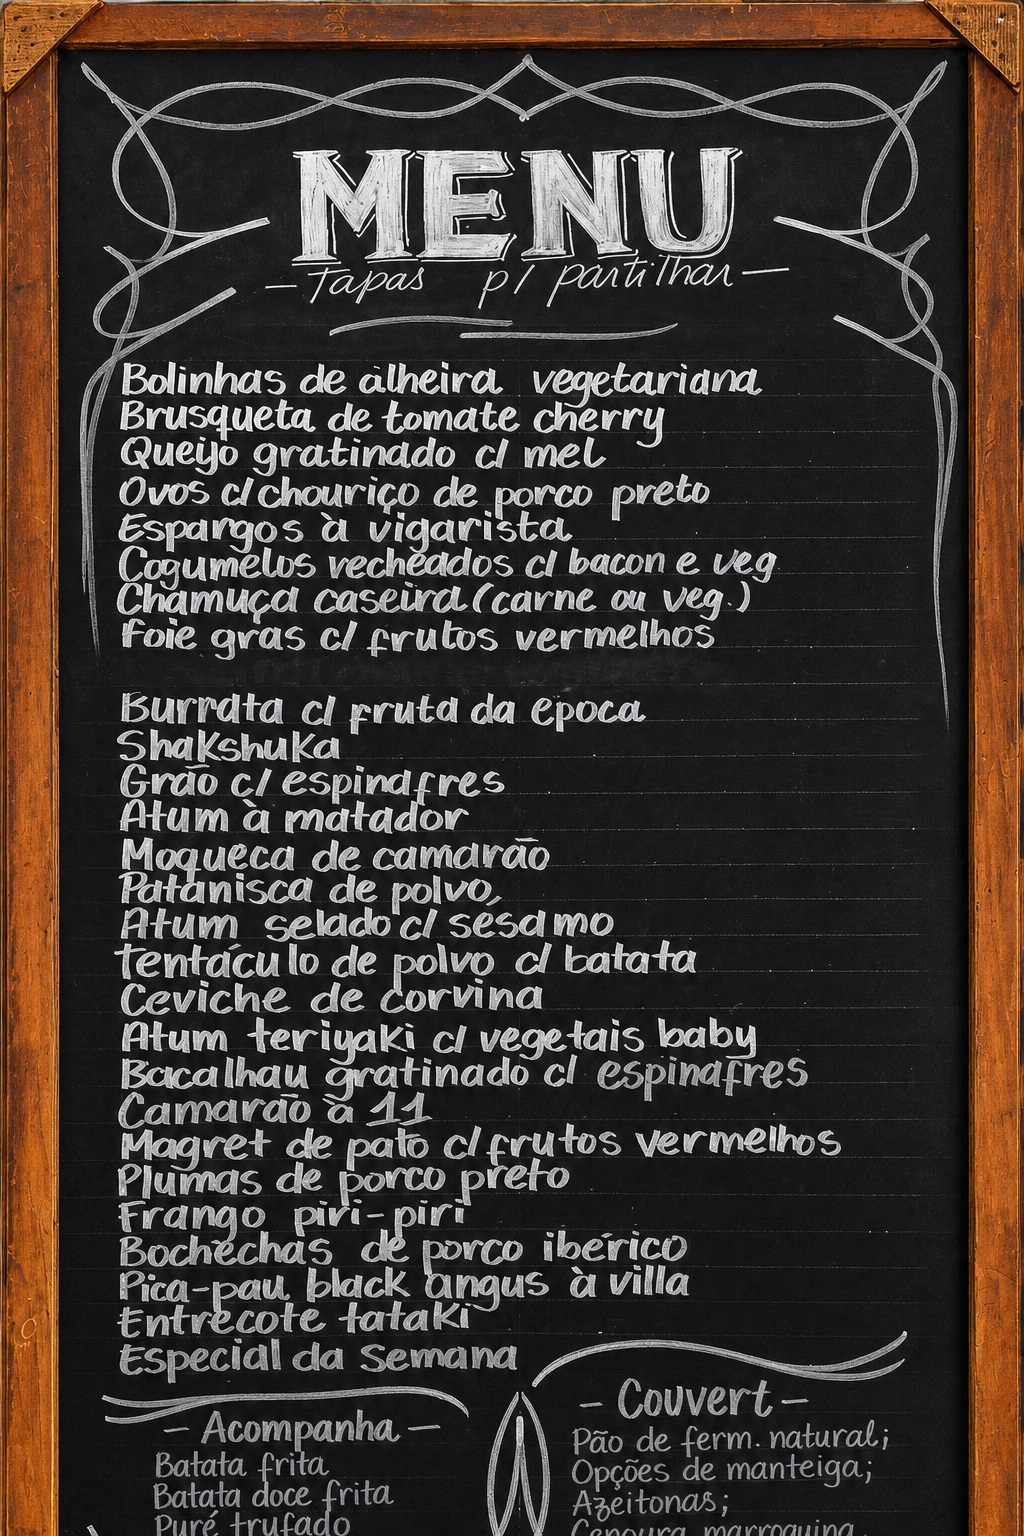 MENU
- Tapas p/ partilhar -
Bolinhas de alheira vegetariana
Brusqueta de tomate cherry
Queijo gratinado c/ mel
Ovos c/ chouriço de porco preto
Espargos à vigarista
Cogumelos vecheados c/ bacon e veg
Chamuça caseira (carne ou veg.)
Foie gras c/ frutos vermelhos
Burrata c/ fruta da epoca
Shakshuka
Grão c/ espinafres
Atum à matador
Moqueca de camarão
Patanisca de polvo,
Atum selado c/ sesamo
tentáculo de polvo c/ batata
Ceviche de corvina
Atum teriyaki c/ vegetais baby
Bacalhau gratinado c/ espinafres
Camarão à 11
Magret de pato c/ frutos vermelhos
Plumas de porco preto
Frango piri-piri
Bochechas de porco ibérico
Pica-pau black angus à villa
Entrecote tataki
Especial da Semana
- Acompanha -
Batata frita
Batata doce frita
Puré trufado
- Couvert -
Pão de ferm. natural;
Opções de manteiga;
Azeitonas;
Cenoura marroquina